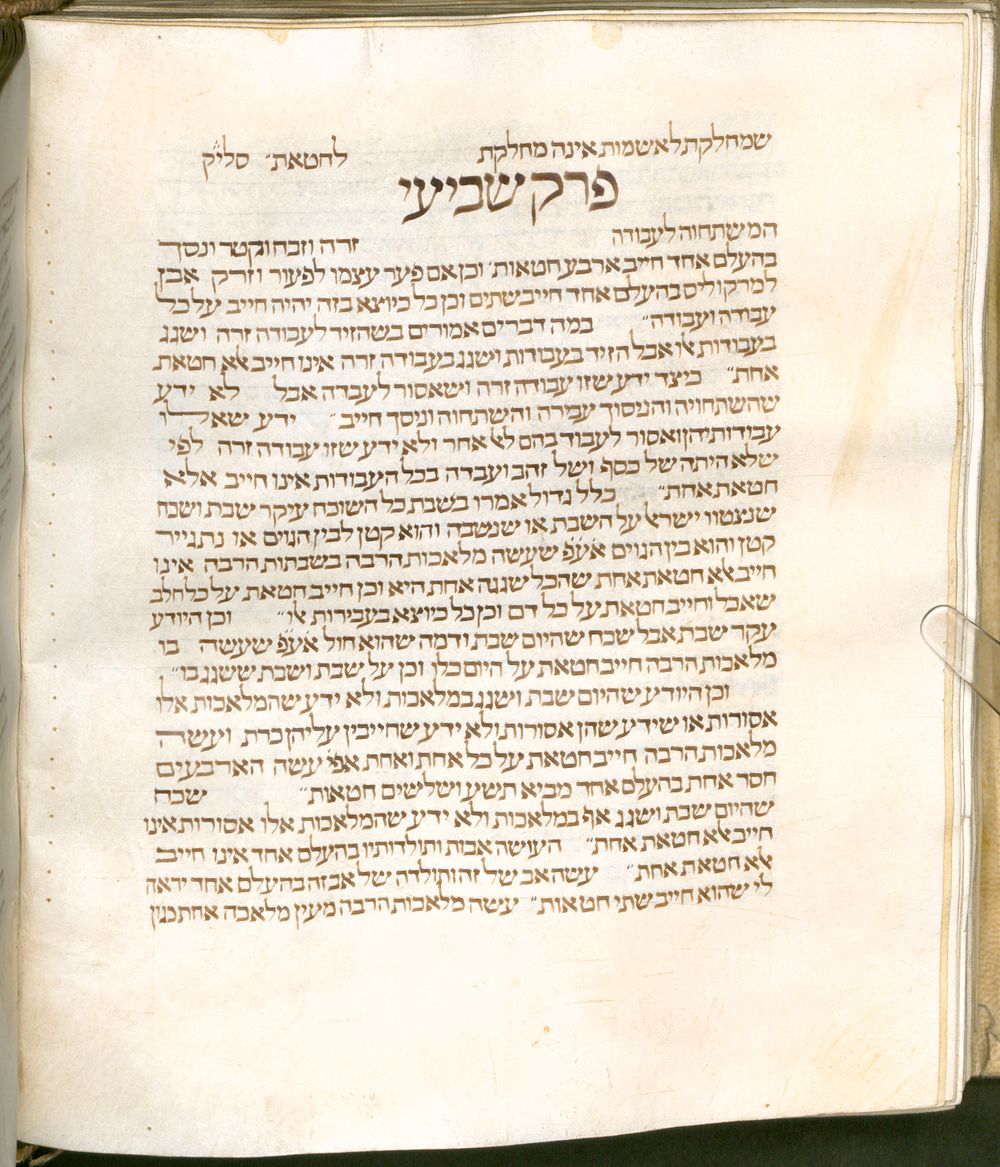 שמחלקת לאשמות אינה מחלקת לחטאת״ סלי״ק
פרק שביעי
המשתחוה לעבודה זרה וזבח וקטר ונסך
בהעלם אחד חייב ארבע חטאות׳ וכן אם פער עצמו לפעור וזרק אבן
למרקוליס בהעלם אחד חייב שתים וכן כל כיוצא בזה יהיה חייב על כל
עבודה ועבודה״ במה דברים אמורים בשהזיד לעבודה זרה ושגג
בעבודות אלו אבל הזיד בעבודות ושגג בעבודה זרה אינו חייב אלא חטאת
אחת״ כיצד ידע שזו עבודה זרה ושאסור לעבדה אבל לא ידע
שהשתחויה והניסוך עבירה והשתחוה וניסך חייב״ ידע שאלו
עבודות הן ואסור לעבוד בהם לאל אחר ולא ידע שזו עבודה זרה לפי
שלא היתה של כסף ושל זהב ועבדה בכל העבודות אינו חייב אלא
חטאת אחת״ כלל גדול אמרו בשבת כל השוכח עיקר שבת ושכח
שנצטוו ישראל על השבת או שנשבה והוא קטן לבין הגוים או נתגייר
קטן והוא בין הגוים אע״פ שעשה מלאכות הרבה בשבתות הרבה אינו
חייב אלא חטאת אחת שהכל שגגה אחת היא וכן חייב חטאת על כל חלב
שאכל וחייב חטאת על כל דם וכן כל כיוצא בעבירות אלו״ וכן היודע
עקר שבת אבל שכח שהיום שבת ודמה שהוא חול אע״פ שעשה בו
מלאכות הרבה חייב חטאת על היום כלו וכן על שבת ושבת ששגג בו״
וכן היודע שהיום שבת ושגג במלאכות ולא ידע שהמלאכות אלו
אסורות או שידע שהן אסורות ולא ידע שחייבין עליהן כרת ועשה
מלאכות הרבה חייב חטאת על כל אחת ואחת אפי׳ עשה הארבעים
חסר אחת בהעלם אחד מביא תשע ושלשים חטאות״ שכח
שהיום שבת ושגג אף במלאכות ולא ידע שהמלאכות אלו אסורות אינו
חייב אלא חטאת אחת״ העושה אבות ותולדותיו בהעלם אחד אינו חייב
אלא חטאת אחת״ עשה אב של זה ותולדה של אב זה בהעלם אחד יראה
לי שהוא חייב שתי חטאות״ עשה מלאכות הרבה מעין מלאכה אחת כגון